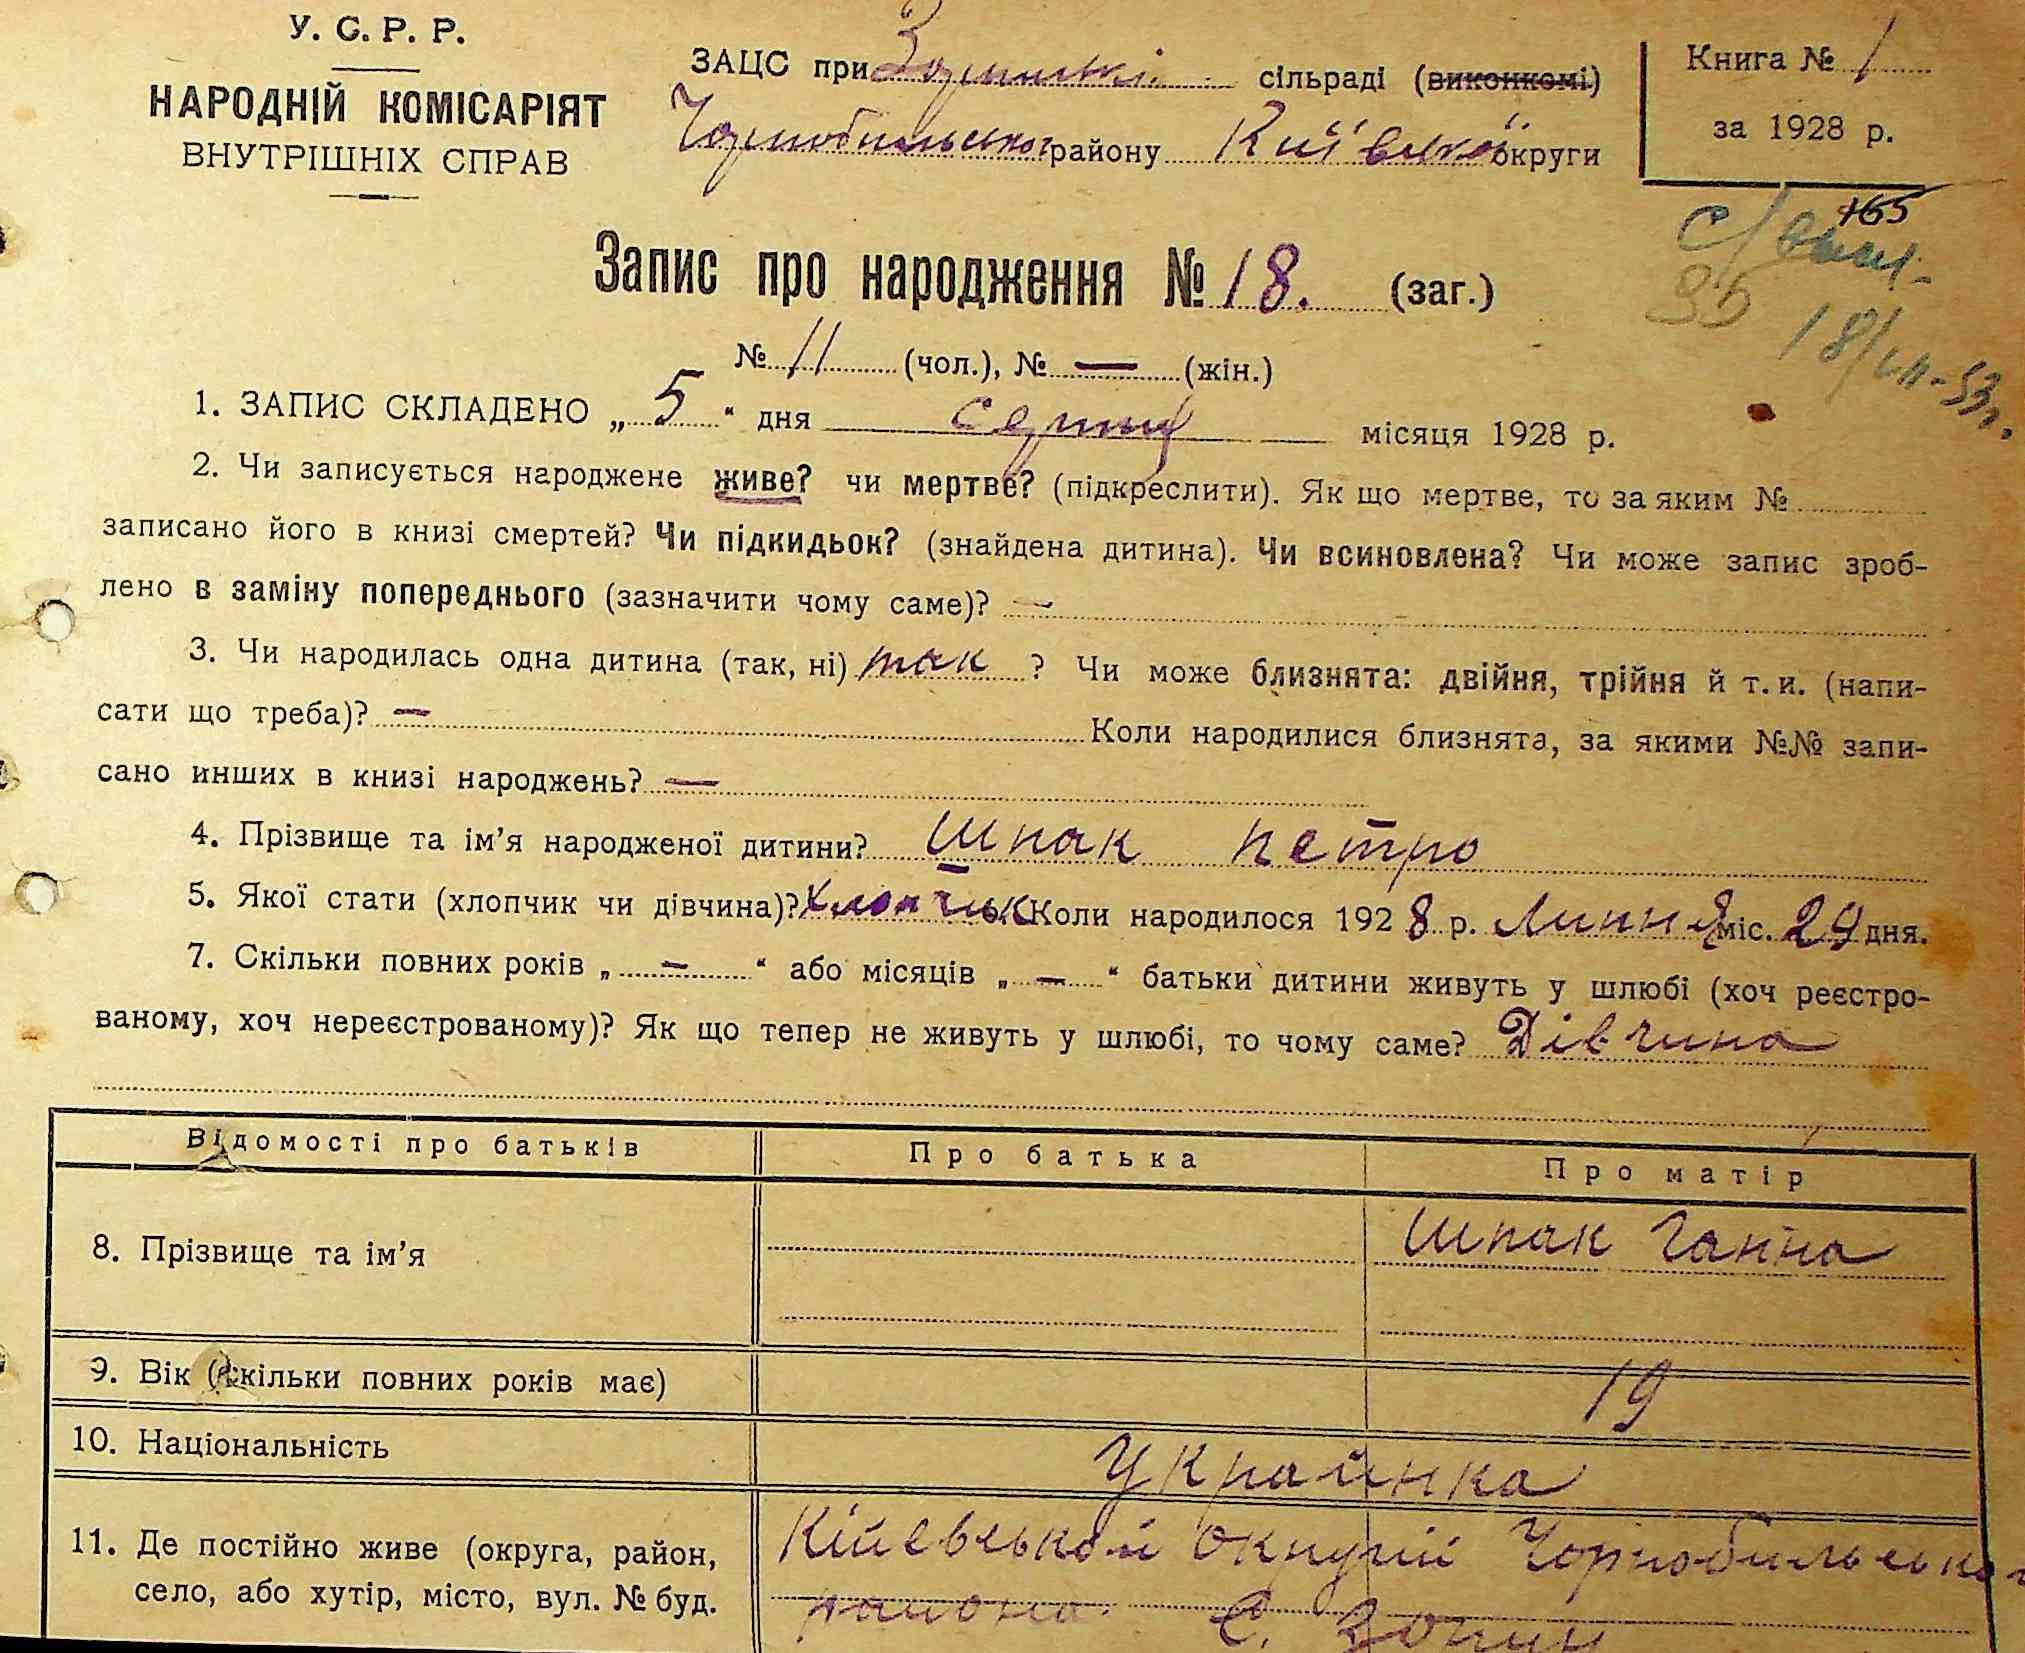 У. С. Р. Р.
НАРОДНІЙ КОМІСАРІЯТ
ВНУТРІШНІХ СПРАВ
ЗАЦС при сільраді (виконкомі)
Чорнобильського району Київської округи
Книга № 1
за 1928 р.
165
95 18/
Запис про народження № 18. (заг.)
№ 11 (чол.), № — (жін.)
1. ЗАПИС СКЛАДЕНО „ 5 “ дня серпня місяця 1928 р.
2. Чи записується народжене живе? чи мертве? (підкреслити). Як що мертве, то за яким №
записано його в книзі смертей? Чи підкидьок? (знайдена дитина). Чи всиновлена? Чи може запис зроб-
лено в заміну попереднього (зазначити чому саме)? —
3. Чи народилась одна дитина (так, ні) так ? Чи може близнята: двійня, трійня й т. и. (напи-
сати що треба)? — Коли народилися близнята, за якими №№ запи-
сано инших в книзі народжень? —
4. Прізвище та ім’я народженої дитини? Шпак Петро
5. Якої стати (хлопчик чи дівчина)? хлопчик Коли народилося 1928 р. Липня міс. 29 дня.
7. Скільки повних років „ — “ або місяців „ — “ батьки дитини живуть у шлюбі (хоч реєстро-
ваному, хоч нереєстрованому)? Як що тепер не живуть у шлюбі, то чому саме? Дівчина
Відомості про батьків Про батька Про матір
8. Прізвище та ім’я Шпак Ганна
9. Вік (скільки повних років має) 19
10. Національність Украйнка
11. Де постійно живе (округа, район, Кійевськой округи Чорнобильсько
село, або хутір, місто, вул. № буд. района. С.